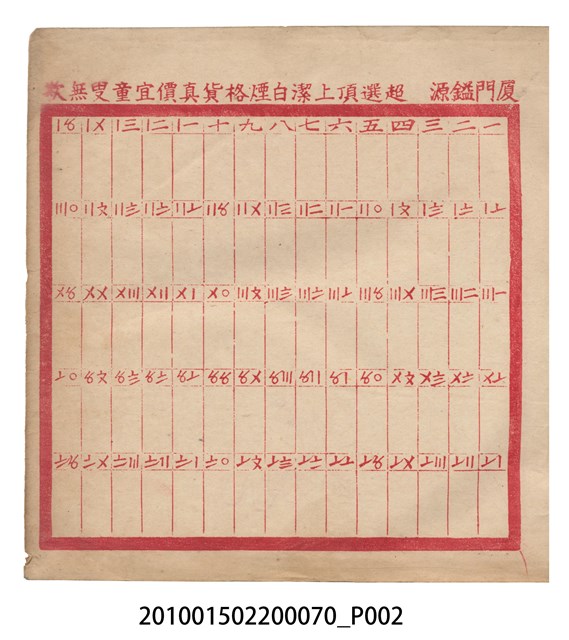 厦門鎰源 超選頂上潔白煙格貨真價宜童叟無欺
一 二 三 四 五 六 七 八 九 十 〡一 〡二 〡三 〡〤 〡〥
〡〦 〡〧 〡〨 〡〩 〢〇 〢一 〢二 〢三 〢〤 〢〥 〢〦 〢〧 〢〨 〢〩 〣〇
〣一 〣二 〣三 〣〤 〣〥 〣〦 〣〧 〣〨 〣〩 〤〇 〤〡 〤〢 〤〣 〤〤 〤〥
〤〦 〤〧 〤〨 〤〩 〥〇 〥〡 〥〢 〥〣 〥〤 〥〥 〥〦 〥〧 〥〨 〥〩 〦〇
〦〡 〦〢 〦〣 〦〤 〦〥 〦〦 〦〧 〦〨 〦〩 〧〇 〧〡 〧〢 〧〣 〧〤 〧〥
201001502200070_P002